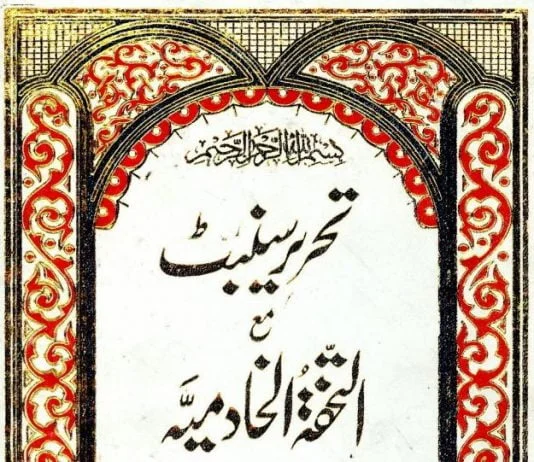 بسم الله الرحمن الرحيم
تحریر سنبٹ
مع
التحفۃ الخادمیَّہ